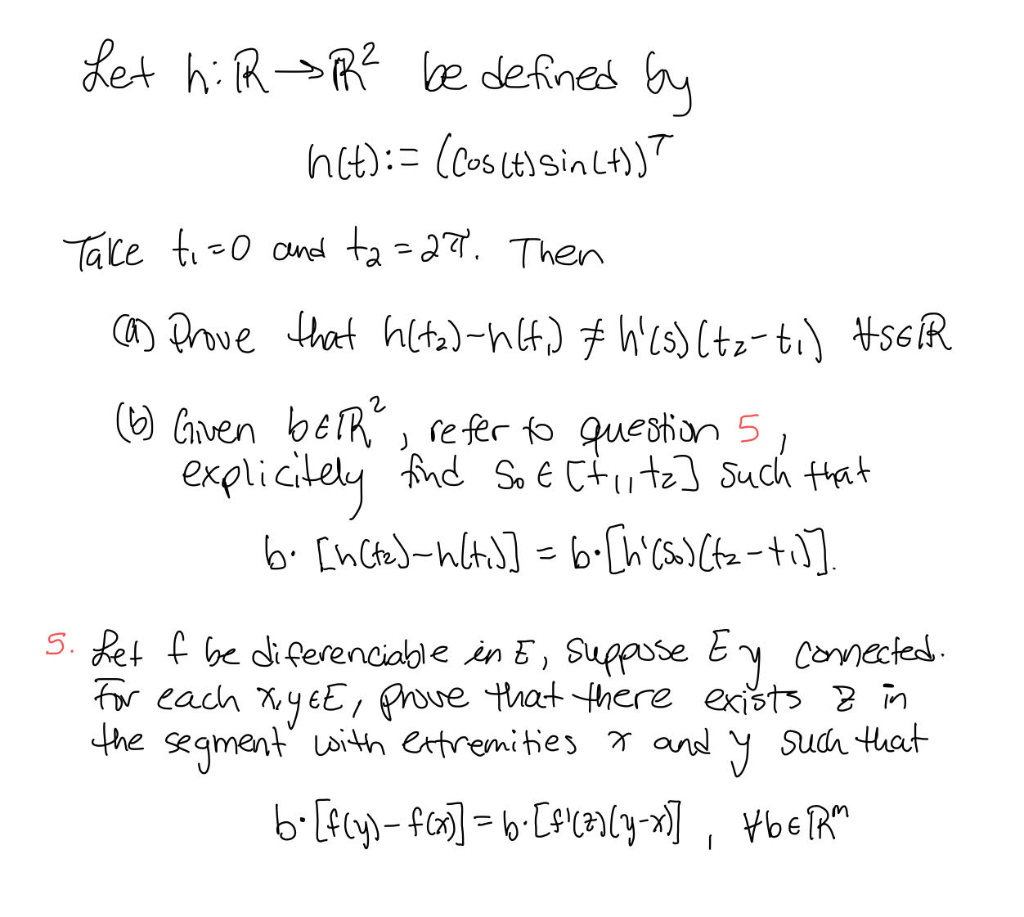 Let h: ℝ → ℝ² be defined by
h(t) := (cos(t) sin(t))ᵀ
Take t₁ = 0 and t₂ = 2π. Then
(a) Prove that h(t₂) - h(t₁) ≠ h'(s)(t₂ - t₁) ∀s∈ℝ
(b) Given b∈ℝ², refer to question 5,
explicitely find S₀ ∈ [t₁, t₂] such that
b· [h(t₂) - h(t₁)] = b·[h'(s₀)(t₂ - t₁)].
5. Let f be diferenciable in E, suppose E y connected.
For each x,y∈E, prove that there exists z in
the segment with extremities x and y such that
b·[f(y) - f(x)] = b·[f'(z)(y-x)], ∀b∈ℝᵐ